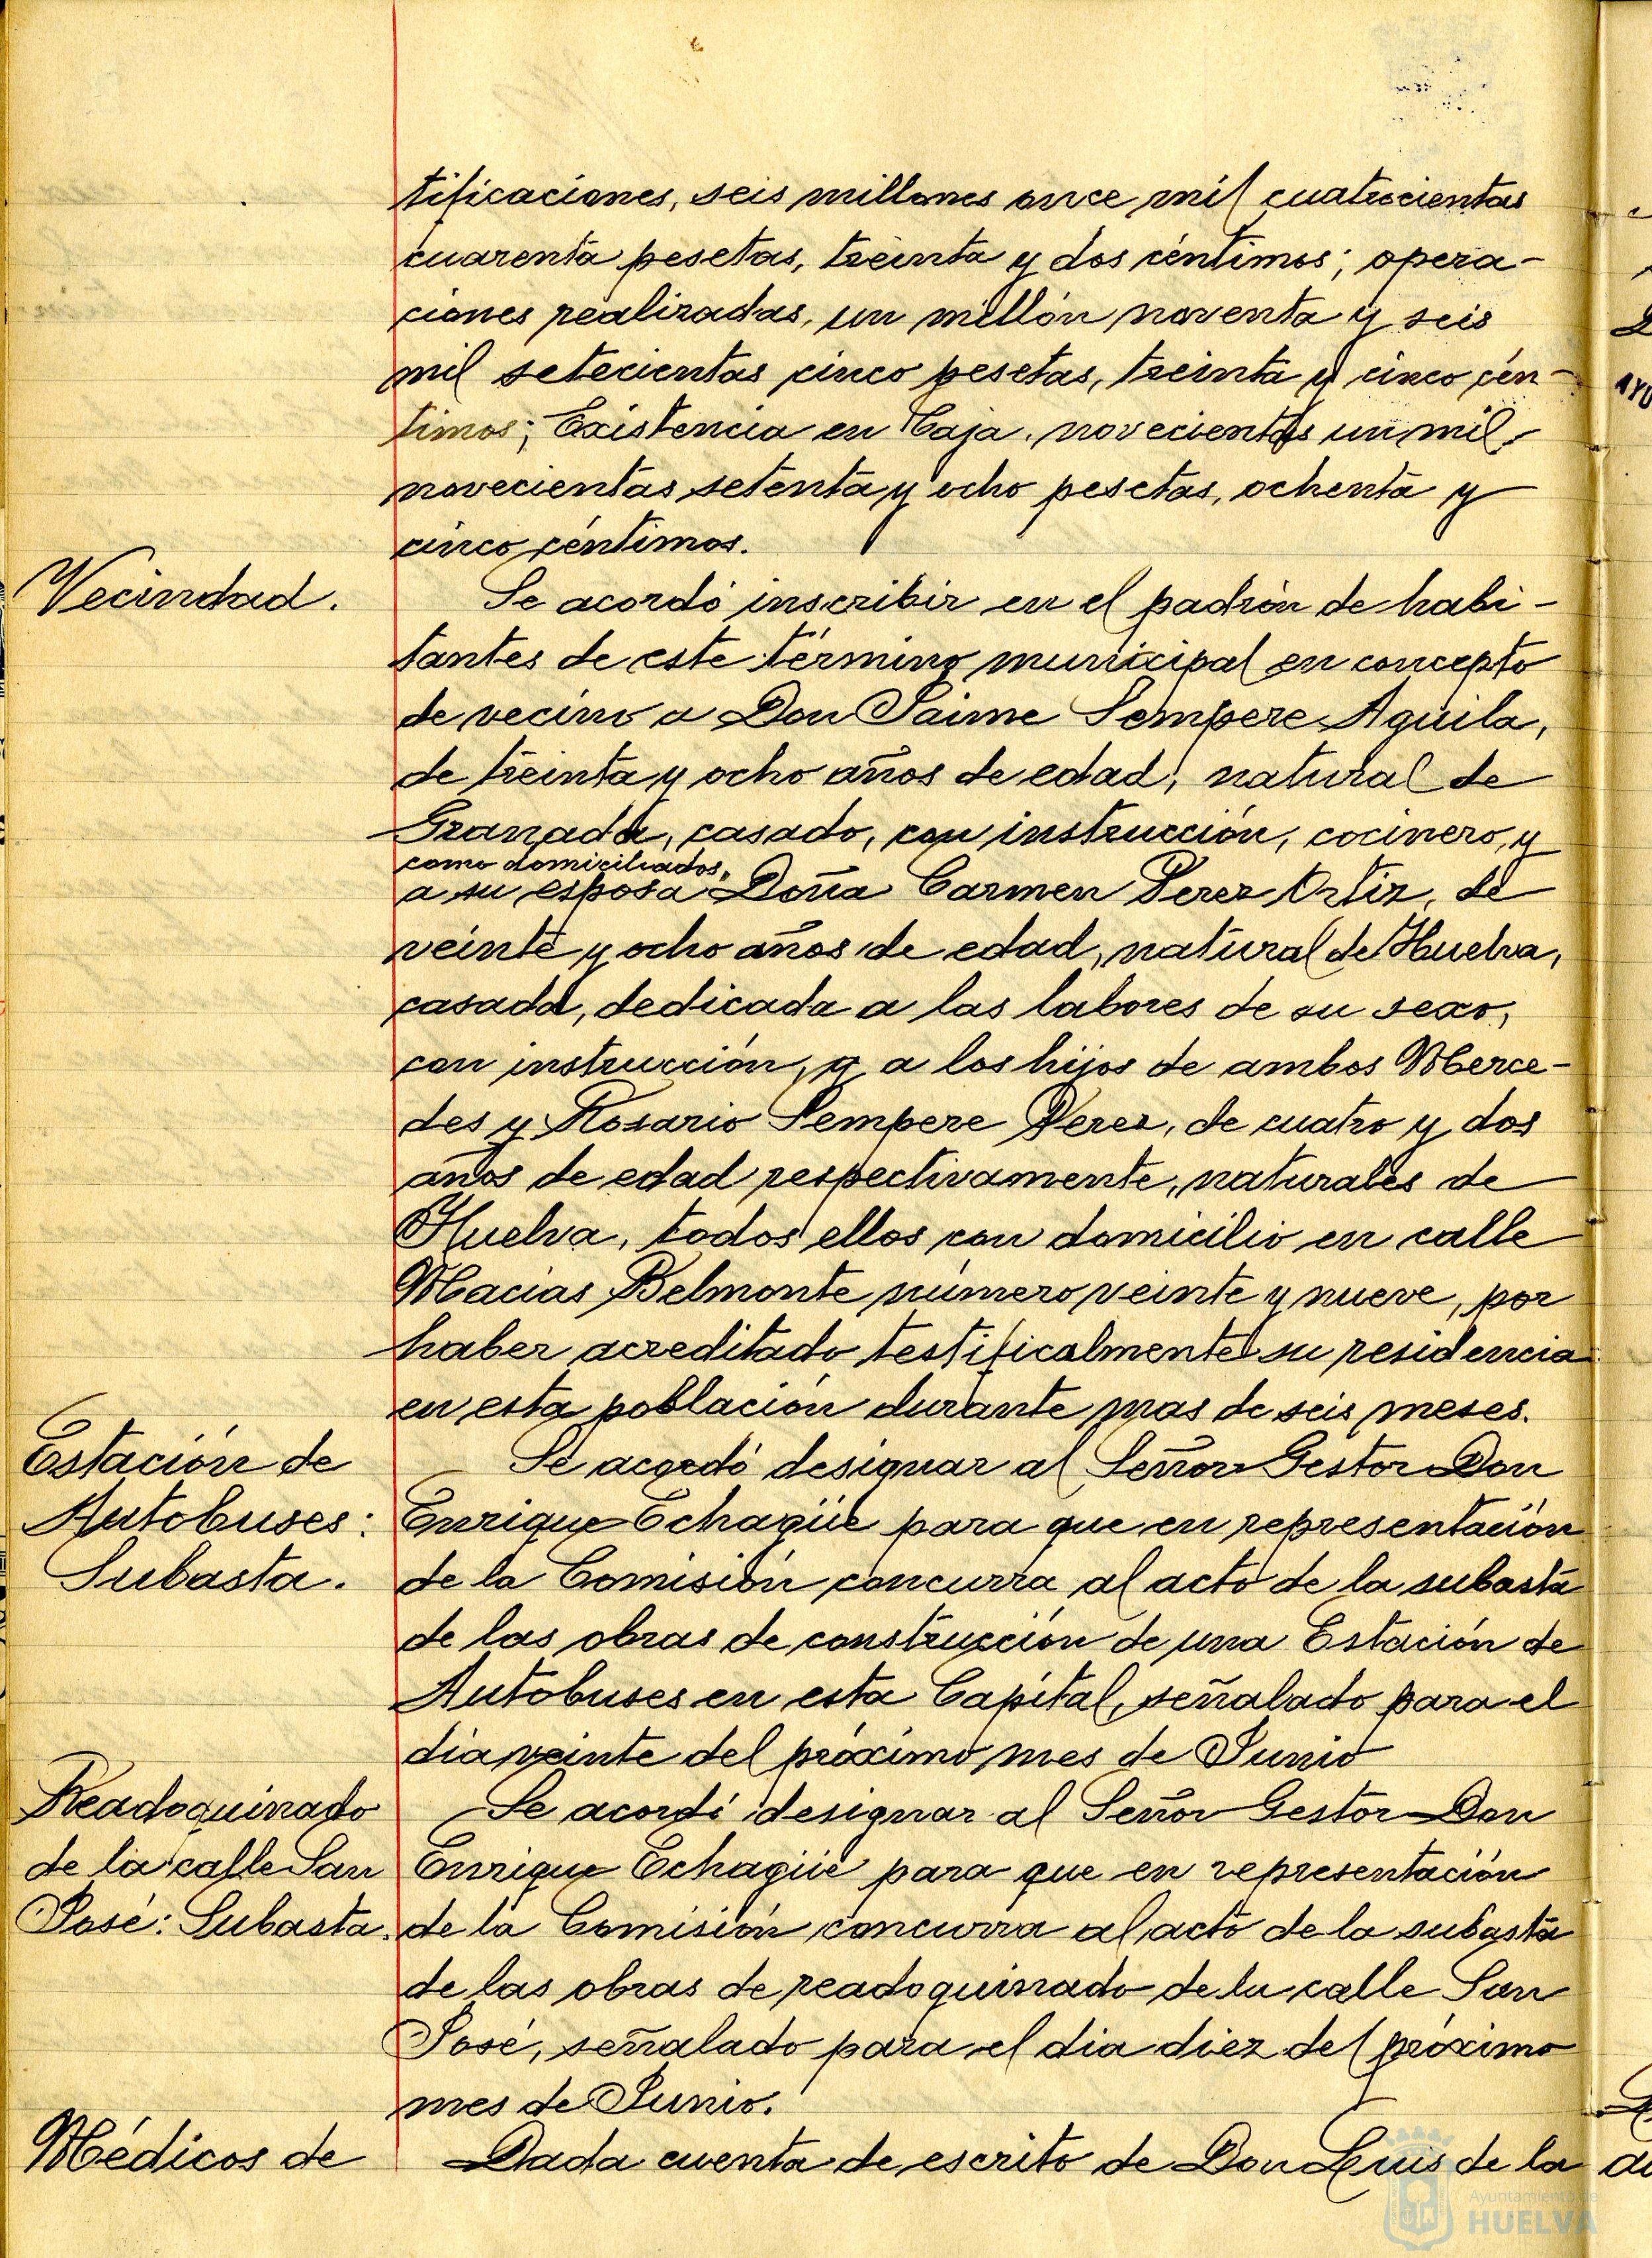 tificaciones, seis millones once mil cuatrocientas
cuarenta pesetas, treinta y dos céntimos; opera-
ciones realizadas, un millón noventa y seis
mil setecientas cinco pesetas, treinta y cinco cén-
timos; Existencia en Caja, novecientas un mil,
novecientas setenta y ocho pesetas, ochenta y
cinco céntimos.
Vecindad.
Se acordó inscribir en el padrón de habi-
tantes de este término municipal en concepto
de vecino a Don Jaime Sempere Aguila,
de treinta y ocho años de edad, natural de
Granada, casado, con instrucción, cocinero, y
como domiciliados,
a su esposa Doña Carmen Perez Ortiz, de
veinte y ocho años de edad, natural de Huelva,
casada, dedicada a las labores de su sexo,
con instrucción, y a los hijos de ambos Merce-
des y Rosario Sempere Perez, de cuatro y dos
años de edad respectivamente, naturales de
Huelva, todos ellos con domicilio en calle
Macias Belmonte número veinte y nueve, por
haber acreditado testificalmente su residencia
en esta población durante mas de seis meses.
Estación de
Autobuses:
Subasta.
Se acordó designar al Señor Gestor Don
Enrique Echagüe para que en representación
de la Comisión concurra al acto de la subasta
de las obras de construcción de una Estación de
Autobuses en esta Capital, señalado para el
dia veinte del próximo mes de Junio
Readoquinado
de la calle San
José: Subasta.
Se acordó designar al Señor Gestor Don
Enrique Echagüe para que en representación
de la Comisión concurra al acto de la subasta
de las obras de readoquinado de la calle San
José, señalado para el dia diez del próximo
mes de Junio.
Médicos de
Dada cuenta de escrito de Don Luis de la
Ayuntamiento de
HUELVA